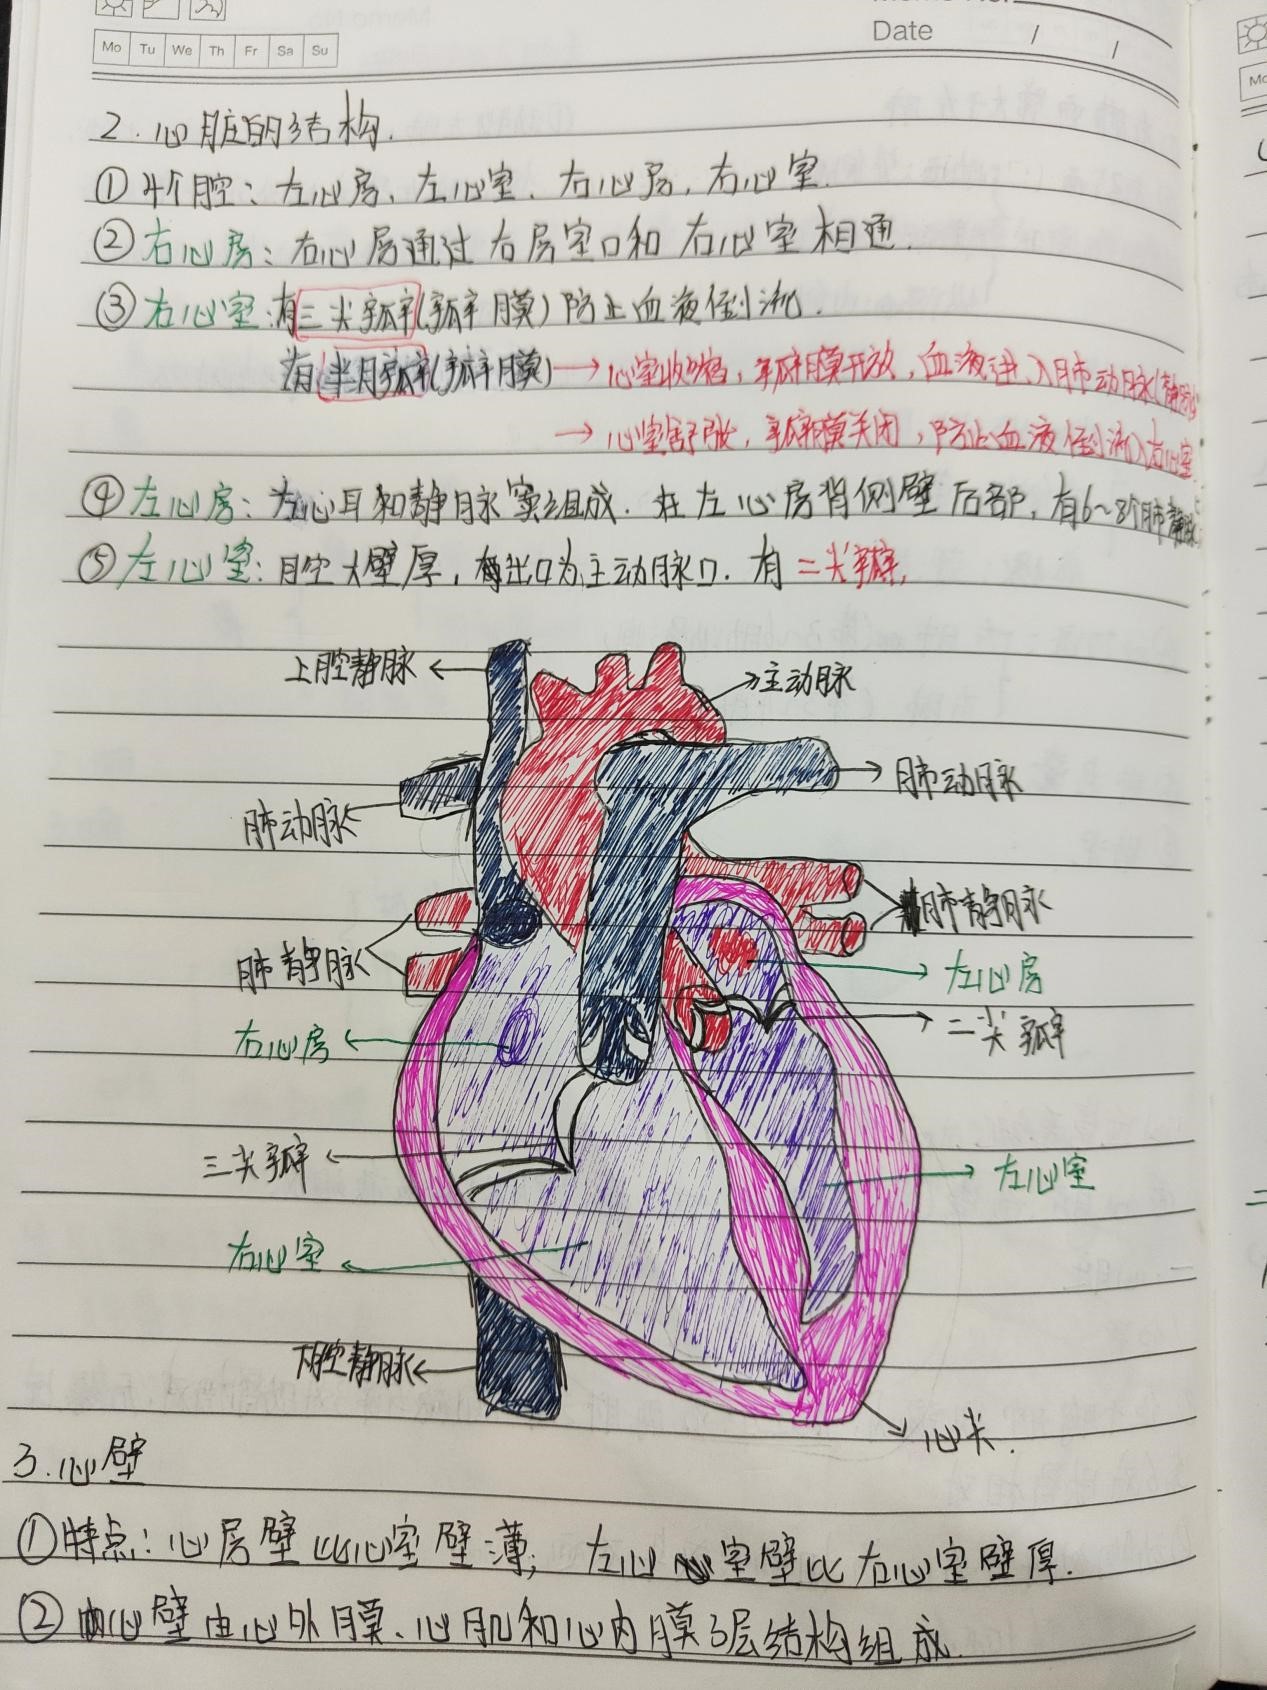 Date / /
Mo Tu We Th Fr Sa Su
2.心脏的结构.
①4个腔:左心房、左心室、右心房,右心室.
②右心房:右心房通过右房室口和右心室相通.
③右心室:有三尖瓣(瓣膜)防止血液倒流.
有半月瓣(瓣膜)→心室收缩,瓣膜开放,血液进入肺动脉
→心室舒张,瓣膜关闭,防止血液倒流入右心室
④左心房:左心耳和静脉窦组成.在左心房背侧壁后部,有6~8个肺静脉
⑤左心室:腔大壁厚,出口为主动脉口.有二尖瓣,
上腔静脉
主动脉
肺动脉
肺动脉
肺静脉
肺静脉
左心房
右心房
二尖瓣
三尖瓣
左心室
右心室
下腔静脉
心尖.
3.心壁
①特点:心房壁比心室壁薄;左心室壁比右心室壁厚.
②心壁由心外膜、心肌和心内膜3层结构组成.